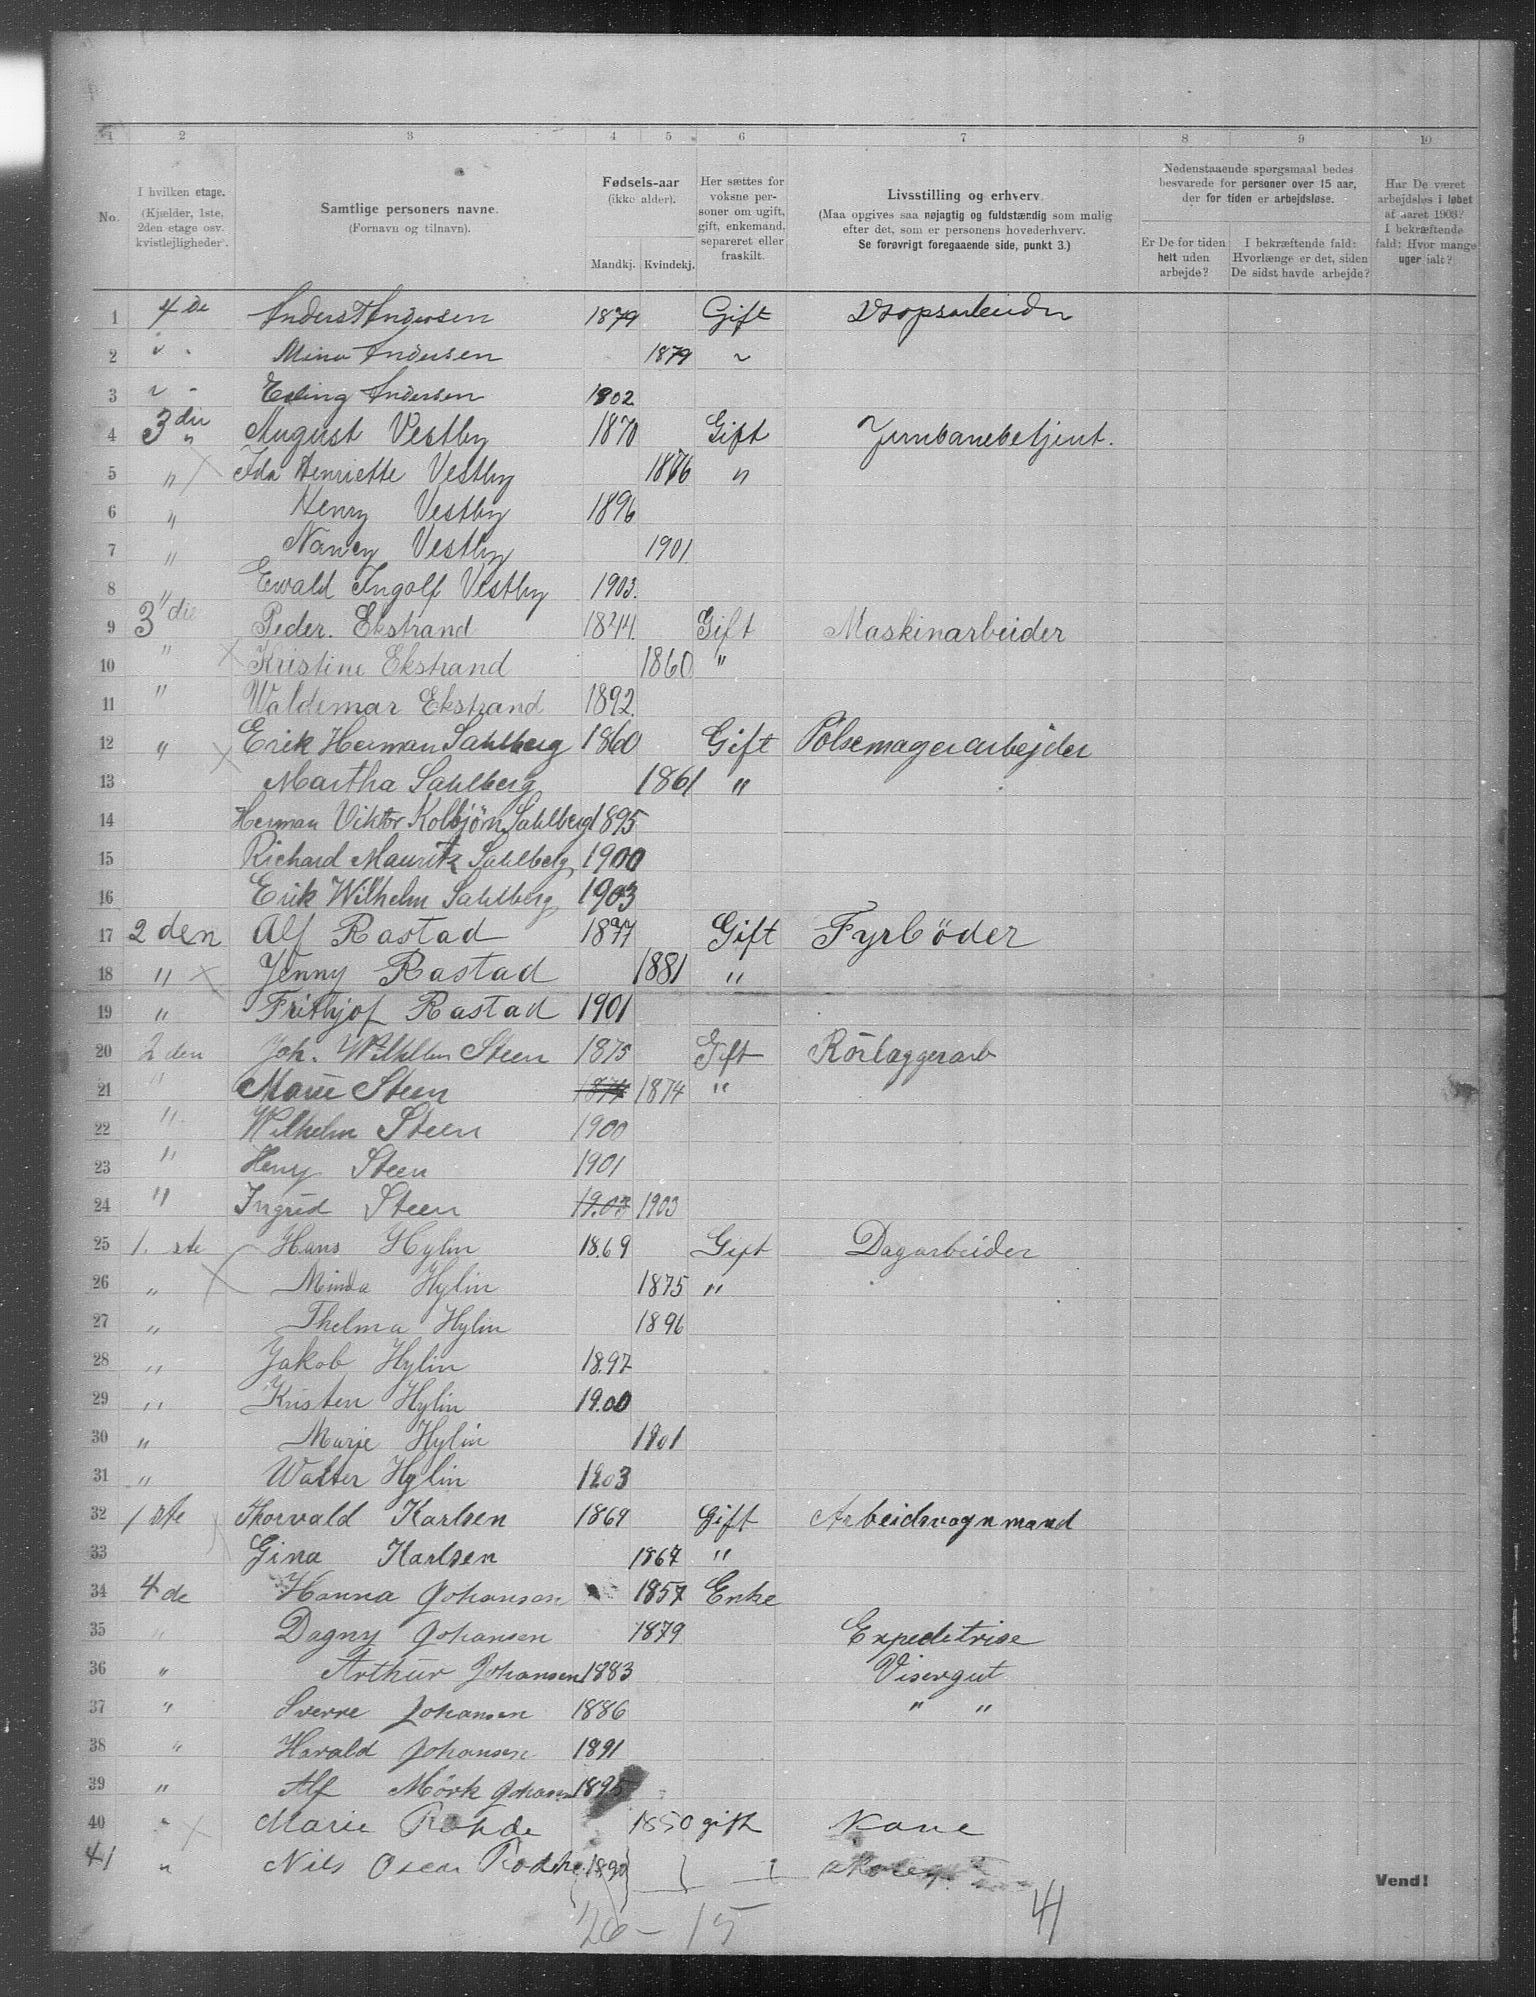 1 2 3 4 5 6 7 8 9 10
No.
I hvilken etage.
(Kjælder, 1ste,
2den etage osv.
kvistlejligheder).
Samtlige personers navne.
(Fornavn og tilnavn).
Fødsels-aar
(ikke alder).
Mandkj. Kvindekj.
Her sættes for
voksne per-
soner om ugift,
gift, enkemand,
separeret eller
fraskilt.
Livsstilling og erhverv.
(Maa opgives saa nøjagtig og fuldstændig som mulig
efter det, som er personens hovederhverv.
Se forøvrigt foregaaende side, punkt 3.)
Nedenstaaende spørgsmaal bedes
besvarede for personer over 15 aar,
der for tiden er arbejdsløse.
Er De for tiden
helt uden
arbejde?
I bekræftende fald:
Hvorlænge er det, siden
De sidst havde arbejde?
Har De været
arbejdsløs i løbet
af aaret 1903?
I bekræftende
fald: Hvor mange
uger ialt?
1 4 de Anders Andersen 1879 Gift
2 " " Mina Andersen 1879 "
3 " " Erling Andersen 1902
4 3 die " August Vestby 1870 Gift Jernbanebetjent.
5 " Ida Henriette Vestby 1876 "
6 " Henry Vestby 1896
7 " Nancy Vestby 1901
8 " Ewald Ingolf Vestby 1903.
9 3 die Peder. Ekstrand 1844. Gift Maskinarbeider
10 " Kristine Ekstrand 1860 "
11 " Waldemar Ekstrand 1892.
12 " Erik Herman Sahlberg 1860 Gift Pølsemagerarbejder
13 Martha Sahlberg 1861 "
14 Herman Viktor Kolbjørn Sahlberg 1895
15 Richard Mauritz Sahlberg, 1900
16 Erik Wilhelm Sahlberg, 1903
17 2 den Alf Rastad 1877 Gift Fyrbøder
18 " Jenny Rastad 1881 "
19 " Frithjof Rastad 1901
20 2 den Joh. Wilhelm Steen 1875 Gift Rörlæggerarb
21 " Marie Steen 1874 1874 "
22 " Wilhelm Steen 1900
23 " Henry Steen 1901
24 " Ingrid Steen 1903 1903
25 1. ste Hans Hylin 1869 Gift Dagarbeider
26 " Minda Hylin 1875 "
27 " Thelma Hylin 1896
28 " Jakob Hylin 1897
29 " Kristen Hylin 1900
30 " Marie Hylin 1901
31 " Walter Hylin 1903
32 1 ste Thorvald Karlsen 1869 Gift Arbeidsvognmand
33 Gina Karlsen 1867 "
34 4 de Hanna Johansen 1857 Enke
35 " Dagny Johansen 1879 Expeditrise
36 " Arthur Johansen 1883 Visergut
37 " Sverre Johansen 1886 " "
38 " Harald Johansen 1891
39 " Alf Mörk Johansen 1895
40 " Marie 1850 gift Kone
41 " Nils Oscar 1890
Vend!
26 - 15 41